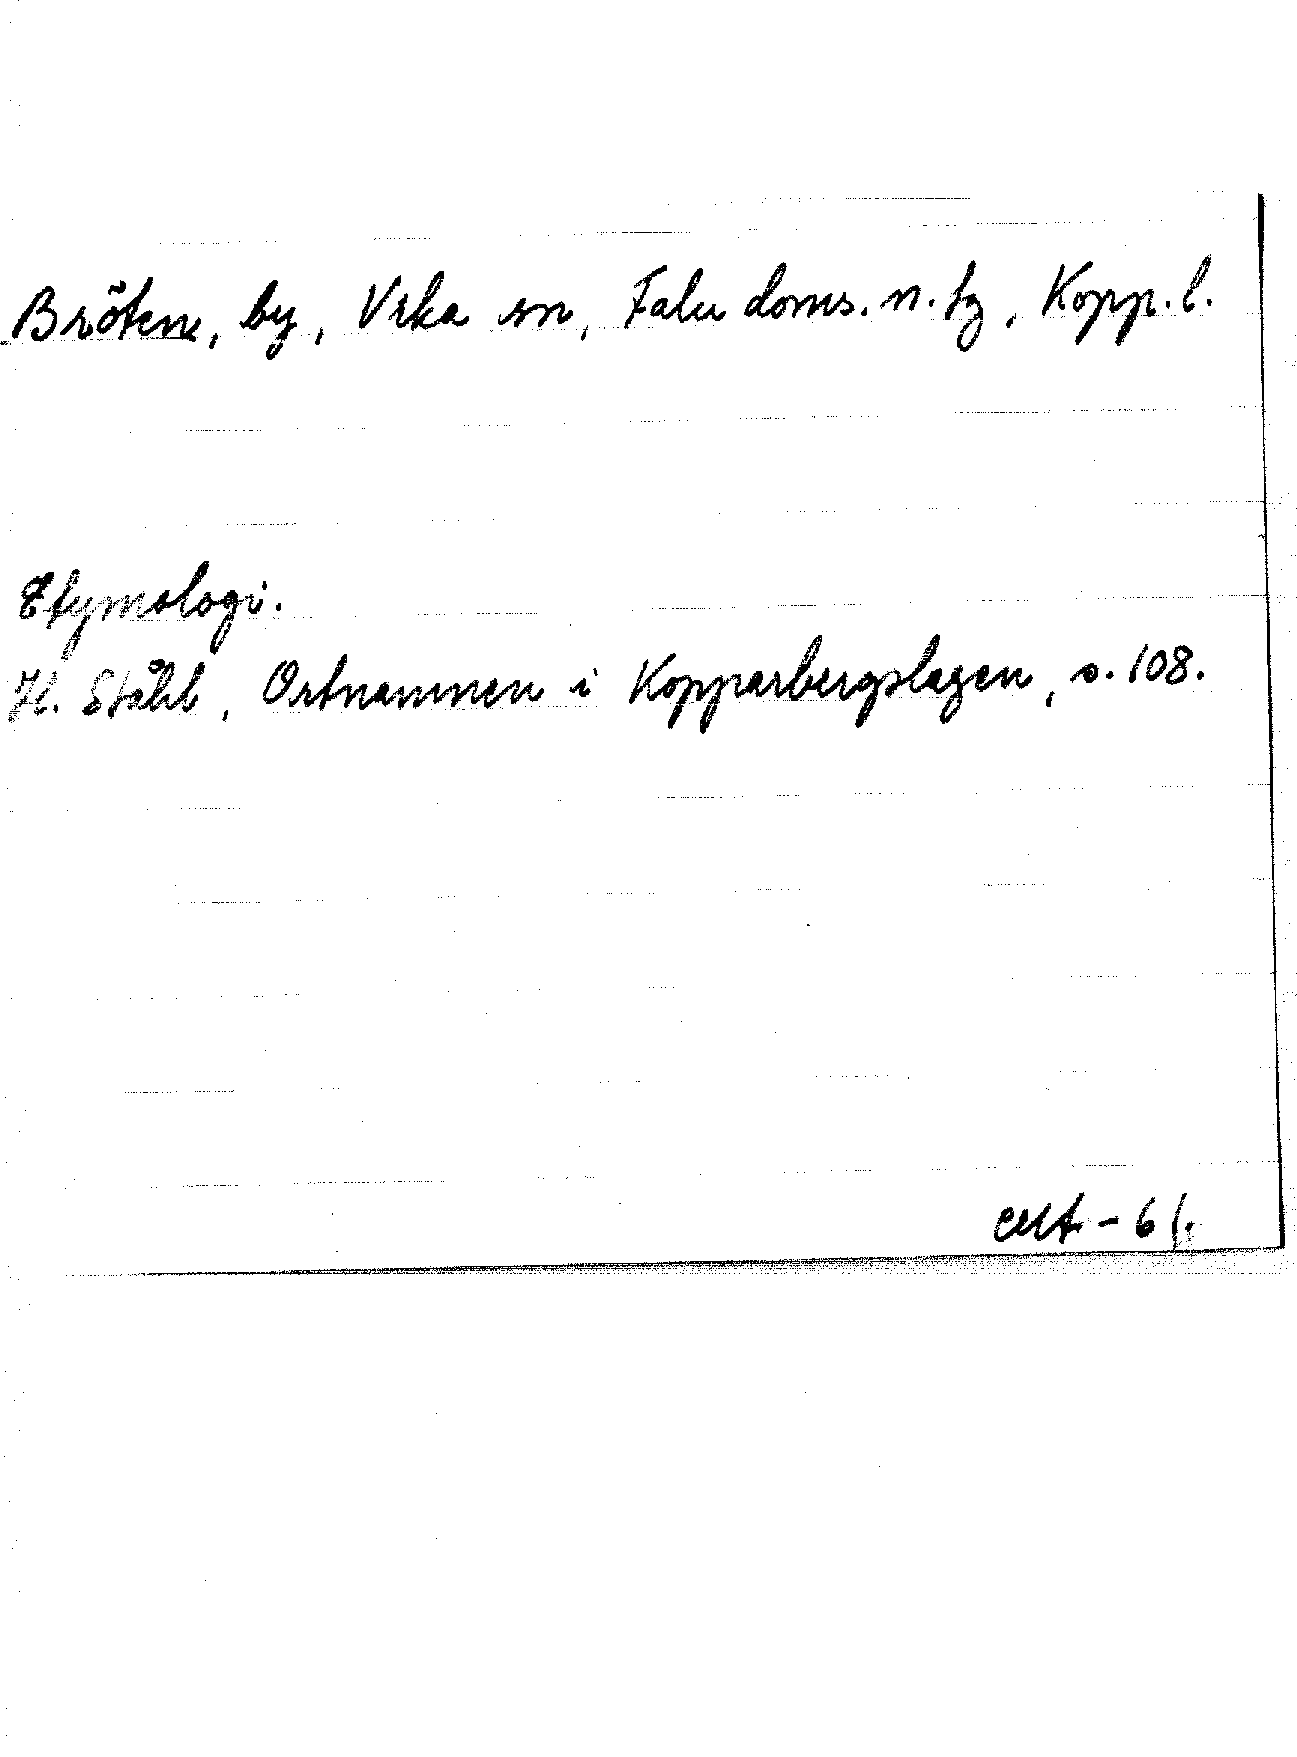 Bröten, by, Vika sn, Falu doms. n. tg, Kopp. l.
Etymologi.
H. Ståhl, Ortnamnen i Kopparbergslagen, s. 108.
-61.